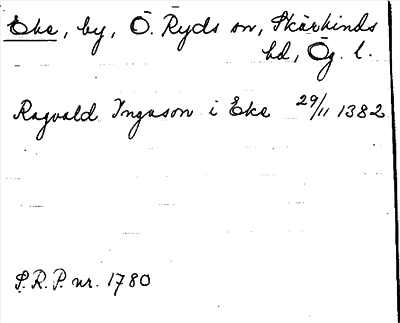 Eke, by, Ö. Ryds sn, Skärkinds
hd, Ög. l.
Ragvald Ingason i Eke 29/11 1382
S.R.P. nr. 1780